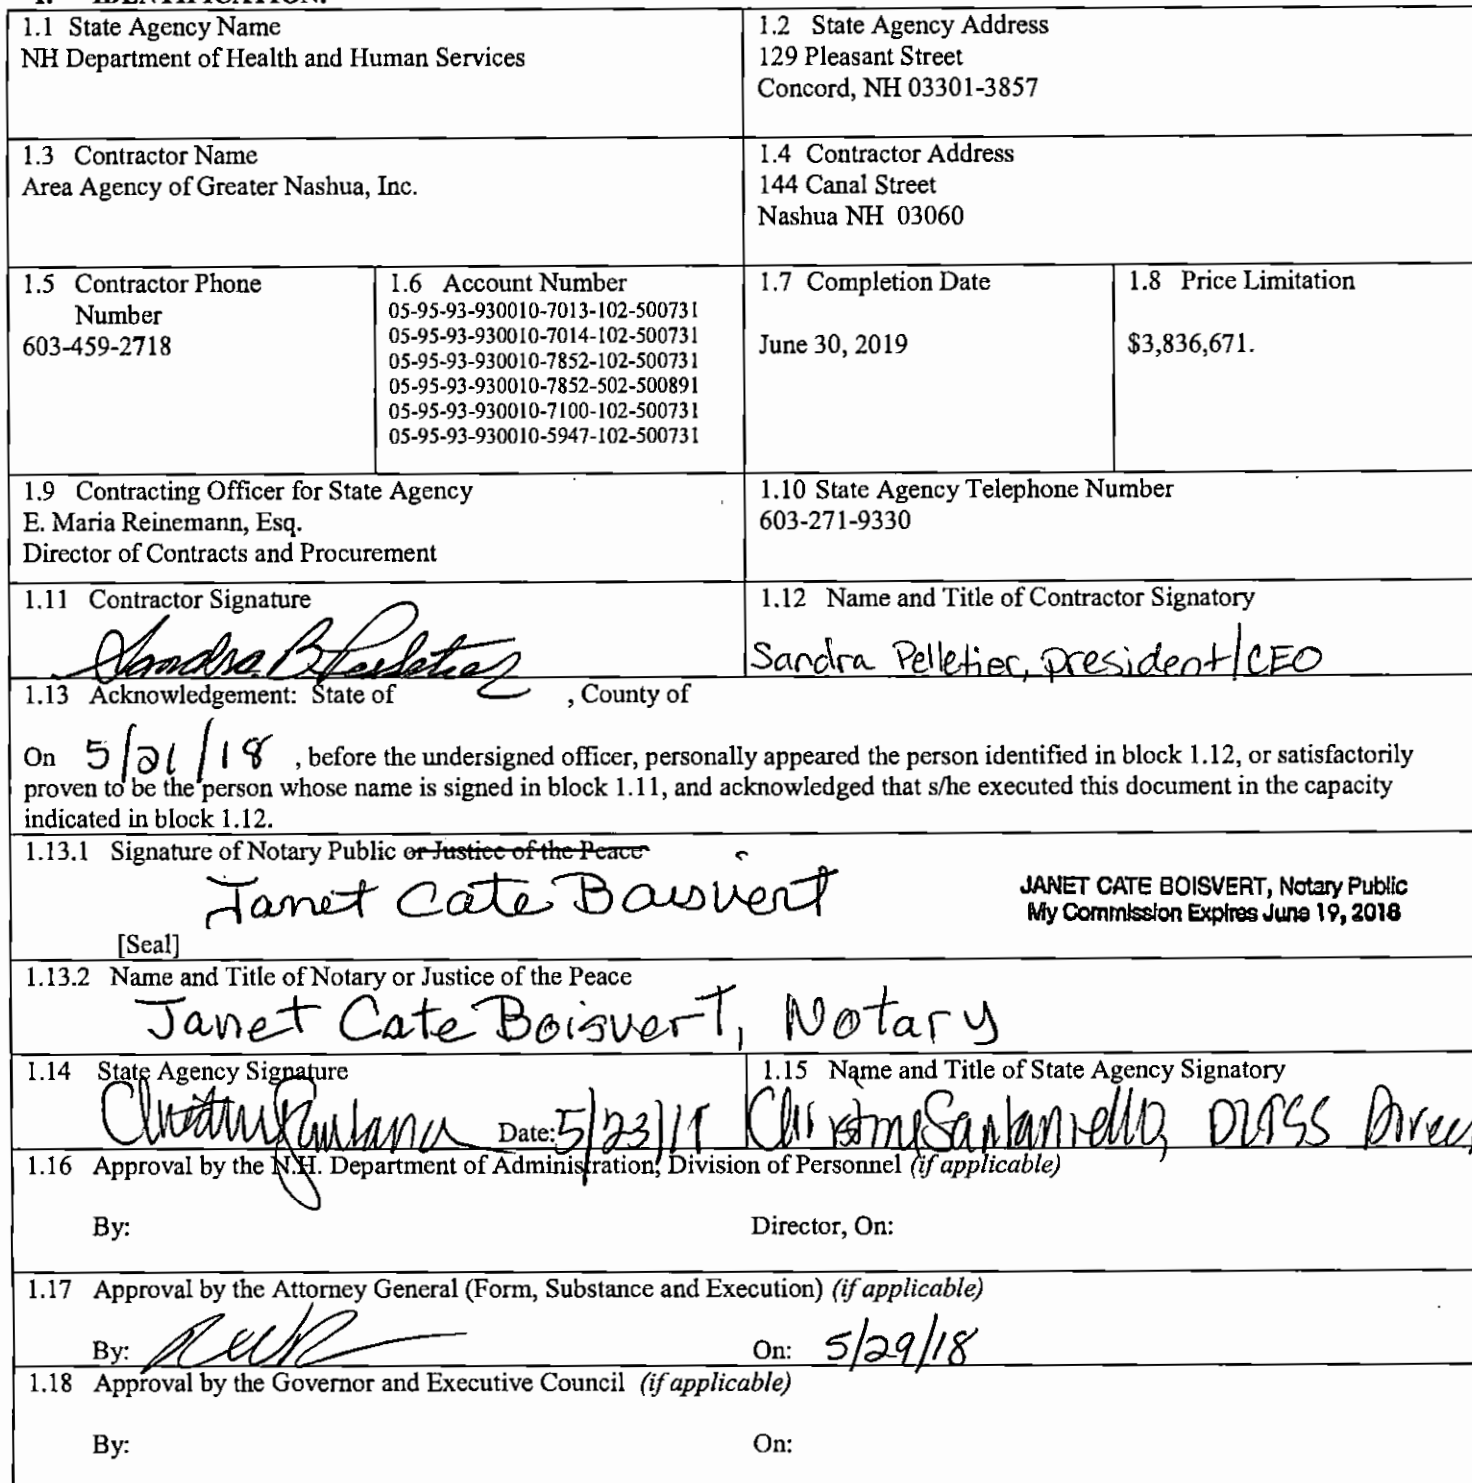 1. IDENTIFICATION.
1.1 State Agency Name
NH Department of Health and Human Services
1.2 State Agency Address
129 Pleasant Street
Concord, NH 03301-3857
1.3 Contractor Name
Area Agency of Greater Nashua, Inc.
1.4 Contractor Address
144 Canal Street
Nashua NH 03060
1.5 Contractor Phone
Number
603-459-2718
1.6 Account Number
05-95-93-930010-7013-102-500731
05-95-93-930010-7014-102-500731
05-95-93-930010-7852-102-500731
05-95-93-930010-7852-502-500891
05-95-93-930010-7100-102-500731
05-95-93-930010-5947-102-500731
1.7 Completion Date
June 30, 2019
1.8 Price Limitation
$3,836,671.
1.9 Contracting Officer for State Agency
E. Maria Reinemann, Esq.
Director of Contracts and Procurement
1.10 State Agency Telephone Number
603-271-9330
1.11 Contractor Signature
Sandra B Pelletier
1.12 Name and Title of Contractor Signatory
Sandra Pelletier, president/CEO
1.13 Acknowledgement: State of , County of
On 5/21/18 , before the undersigned officer, personally appeared the person identified in block 1.12, or satisfactorily
proven to be the person whose name is signed in block 1.11, and acknowledged that s/he executed this document in the capacity
indicated in block 1.12.
1.13.1 Signature of Notary Public or Justice of the Peace
Janet Cate Boisvert
JANET CATE BOISVERT, Notary Public
My Commission Expires June 19, 2018
[Seal]
1.13.2 Name and Title of Notary or Justice of the Peace
Janet Cate Boisvert, Notary
1.14 State Agency Signature
Date: 5/23/
1.15 Name and Title of State Agency Signatory
Christine Santaniello,
1.16 Approval by the N.H. Department of Administration, Division of Personnel (if applicable)
By: Director, On:
1.17 Approval by the Attorney General (Form, Substance and Execution) (if applicable)
By: On: 5/29/18
1.18 Approval by the Governor and Executive Council (if applicable)
By: On: